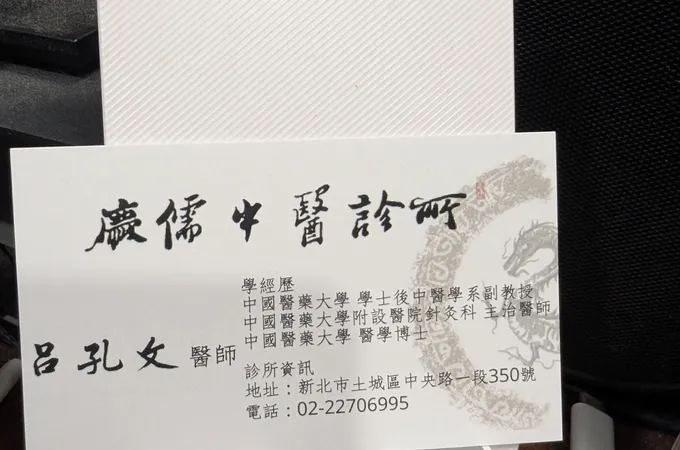 慶儒中醫診所
學經歷
中國醫藥大學 學士後中醫學系副教授
中國醫藥大學附設醫院針灸科 主治醫師
中國醫藥大學 醫學博士
呂孔文 醫師
診所資訊
地址：新北市土城區中央路一段350號
電話：02-22706995